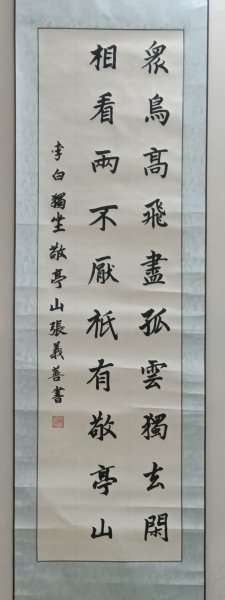 眾鳥高飛盡孤雲獨去閑
相看兩不厭祇有敬亭山
李白獨坐敬亭山張義善書